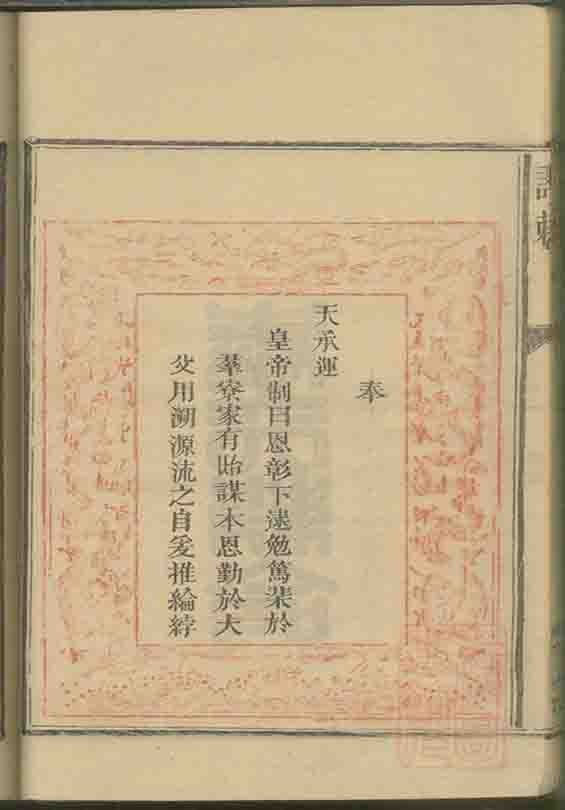 奉
天承運
皇帝制曰恩彰下逮勉篤棐於
羣寮家有貽謀本恩勤於大
父用溯源流之自爰推綸綍
誥敕